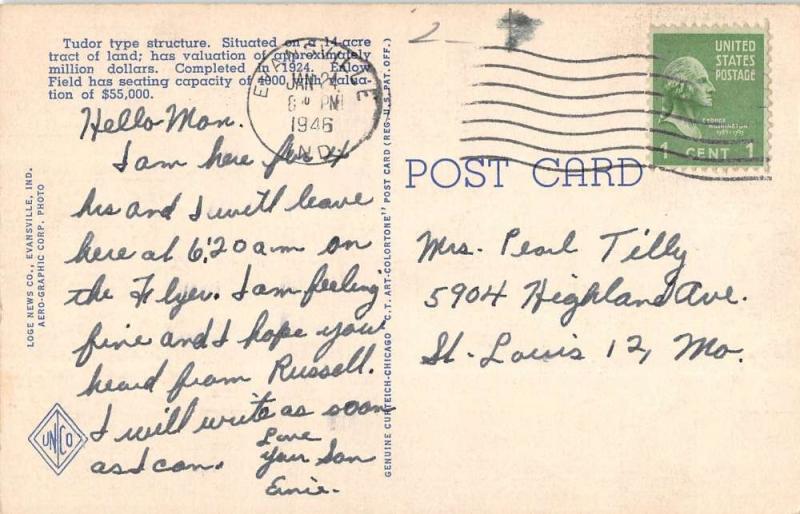 Tudor type structure. Situated on a 14-acre
tract of land; has valuation of approximately
million dollars. Completed in 1924. Enlow
Field has seating capacity of 4000 with valua-
tion of $55,000.
Hello Mom.
I am here for 4
hrs and I will leave
here at 6:20 a.m on
the Flyer. I am feeling
fine and I hope your
heard from Russell.
I will write as soon
as I can.
Love
Your Son
Ernie.
LOGE NEWS CO., EVANSVILLE, IND.
AERO-GRAPHIC CORP. PHOTO
UNCO
GENUINE CURTEICH-CHICAGO "C.T. ART-COLORTONE" POST CARD (REG. U.S. PAT. OFF.)
EVANSVILLE
JAN 24
8 PM
1946
IND.
2
UNITED
STATES
POSTAGE
GEORGE
WASHINGTON
1 CENT 1
POST CARD
Mrs. Pearl Tilly
5904 Highland Ave.
St. Louis 12, Mo.